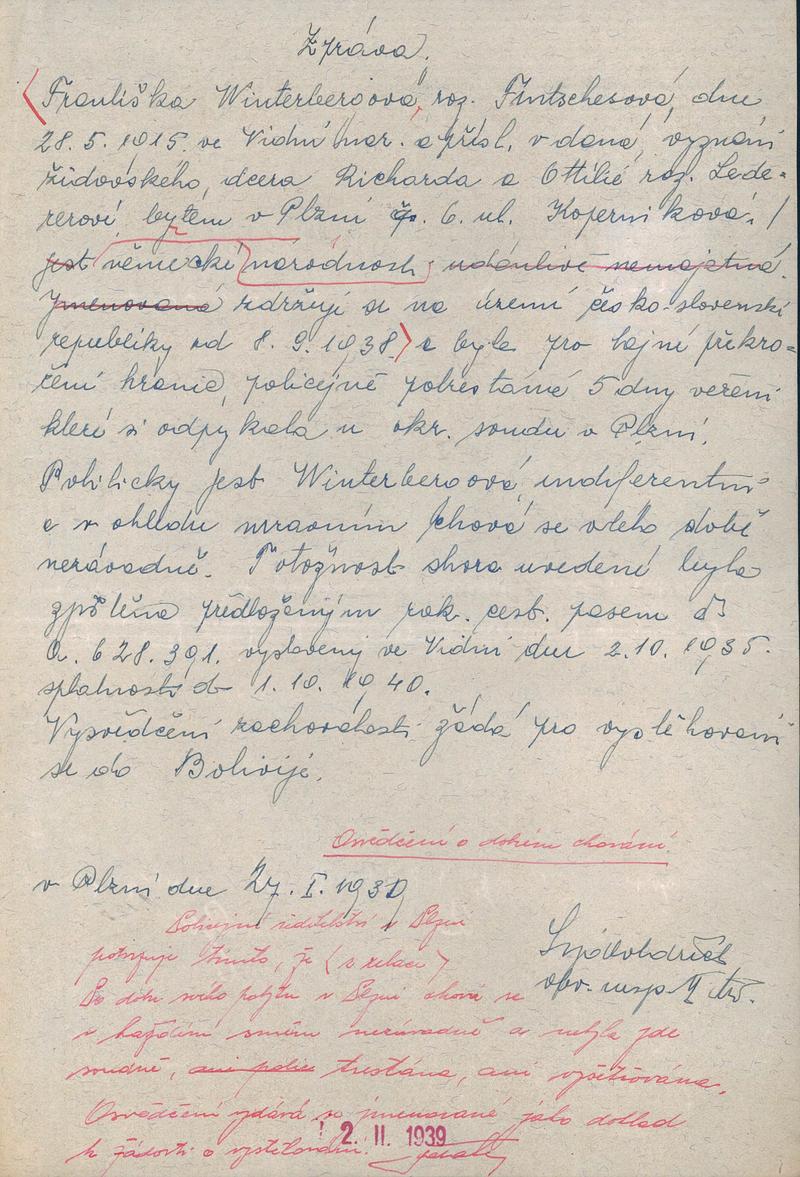 Zpráva.
Františka Winterbergová, roz. Fantschesová, dne
28. 5. 1915. ve Vídni nar. a přísl. vdaná, vyznání
židovského, dcera Richarda a Ottilie roz. Lede=
rerové, bytem v Plzni čp. 6. ul. Koperníkova.
jest německé národnosti, údánlivě nemajetná.
Jmenovaná zdržuje se na území česko-slovenské
republiky od 8. 9. 1938 a byla pro tajné překro=
čení hranic, policejně potrestána 5 dny vězení
které si odpykala u okr. soudu v Plzni.
Politicky jest Winterbergová indiferentní
a v ohledu mravním chová se v této době
nezávadně. Totožnost shora uvedené byla
zjištěna předloženým rak. cest. pasem čís.
A. 628.391. vystavený ve Vídni dne 2.10. 1935.
splatnosti do 1. 10. 1940.
Vysvědčení zachovalosti žádá pro vystěhování
se do Bolivije.
Osvědčení o dobrém chování.
v Plzni dne 27. I. 1939
Policejní ředitelství v Plzni
potvrzuje tímto, že (z relace)
Po dobu svého pobytu v Plzni chová se
v každém směru nezávadně a nebyla zde
soudně, ani polic. trestána, ani vyšetřována.
Osvědčení vydává se jmenované jako doklad
k žádosti o vystěhování.
2. II. 1939